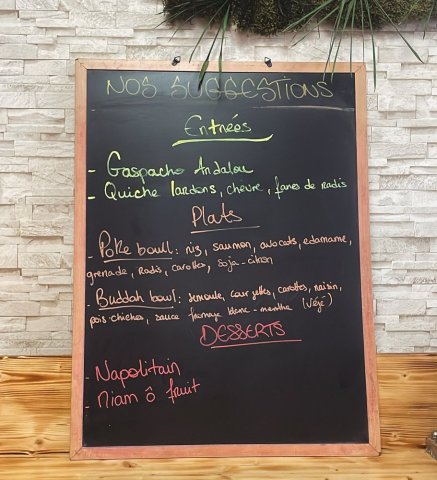 NOS SUGGESTIONS
Entrées
- Gaspacho Andalou
- Quiche lardons, chèvre, fanes de radis
Plats
- Poke bowl : riz, saumon, avocats, edamame,
grenade, Radis, carottes, Soja-citron
- Buddah bowl : semoule, courgettes, carottes, raisin,
pois chiches, sauce fromage blanc-menthe (végé)
DESSERTS
- Napolitain
- Niam ô fruit